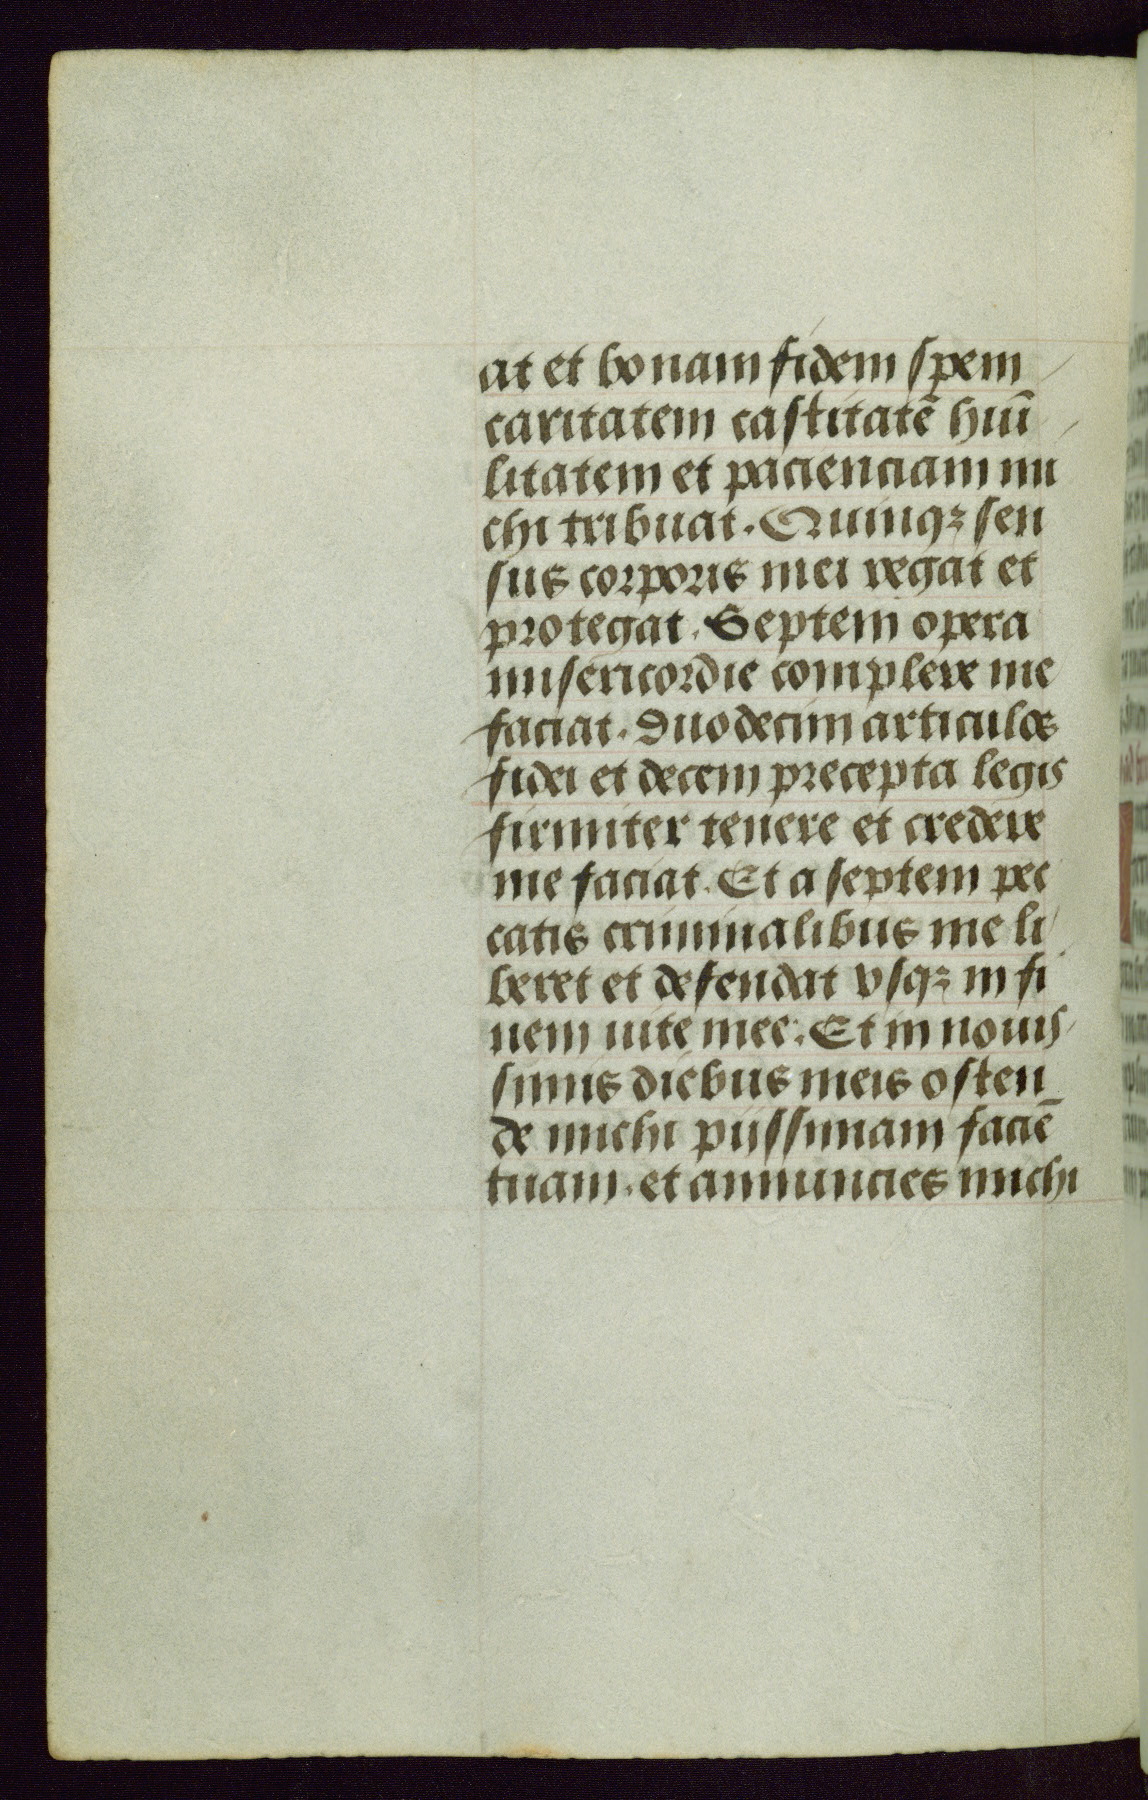 at et bonam fidem spem
caritatem castitatē humī
litatem et pacienciam mi
chi tribuat. Quinqꝫ sen
sus corporis mei regat et
protegat. Septem opera
misericordie complere me
faciat. Duodecim articulos
fidei et decem precepta legis
firmiter tenere et credere
me faciat. Et a septem pec
catis criminalibus me li
beret et defendat vsqꝫ in fi
nem uite mee. Et in nouis
simis diebus meis osten
de michi piissimam faciē
tuam. et annuncies michi